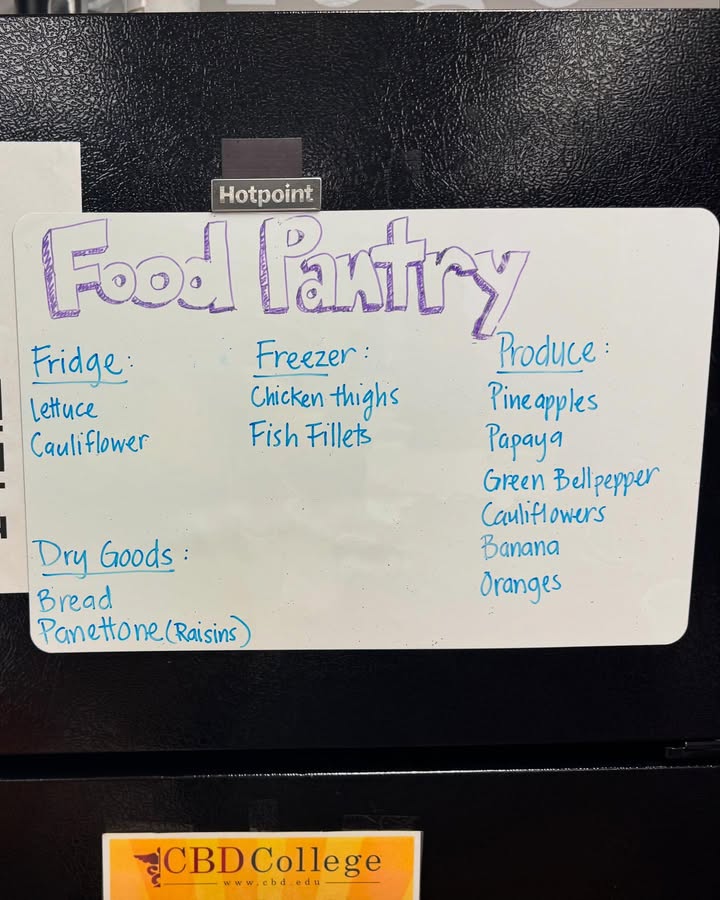 Hotpoint
Food Pantry
Fridge:
Lettuce
Cauliflower
Freezer:
Chicken thighs
Fish Fillets
Produce:
Pineapples
Papaya
Green Bellpepper
Cauliflowers
Banana
Oranges
Dry Goods:
Bread
Panettone (Raisins)
CBD College
www.cbd.edu